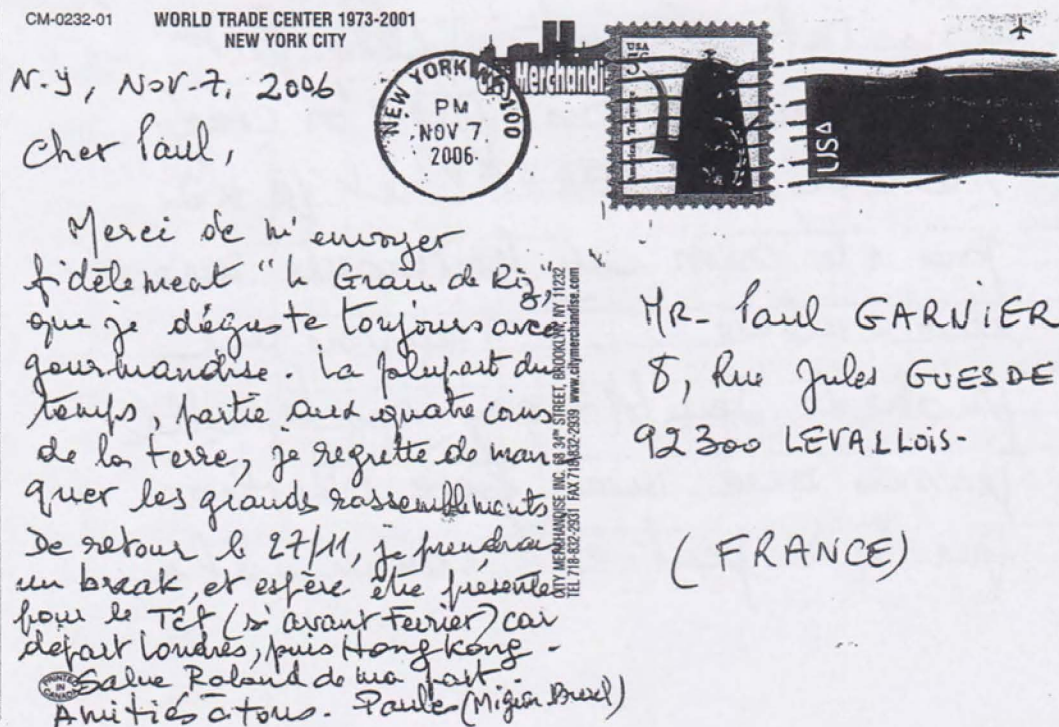 CM-0232-01
WORLD TRADE CENTER 1973-2001
NEW YORK CITY
NEW YORK NY 100
PM
NOV 7
2006
City Merchandi
USA
USA
N.Y, Nov. 7, 2006
Cher Paul,
Merci de m'envoyer
fidèlement "le Grain de Riz,"
que je déguste toujours avec
gourmandise. La plupart du
temps, partie aux quatre coins
de la terre, je regrette de man
quer les grands rassemblements
De retour le 27/11, je prendrai
un break, et espère être présente
pour le Têt (si avant Fevrier) car
départ Londres, puis Hong Kong -
Salue Roland de ma part.
Amitiés à tous. Paule (Migeon Burel)
PRINTED
IN
CANADA
CITY MERCHANDISE INC. 68 34TH STREET, BROOKLYN, NY 11232
TEL 718-832-2931 FAX 718-832-2939 www.citymerchandise.com
MR- Paul GARNIER
8, Rue Jules GUESDE
92300 LEVALLOIS-
(FRANCE)